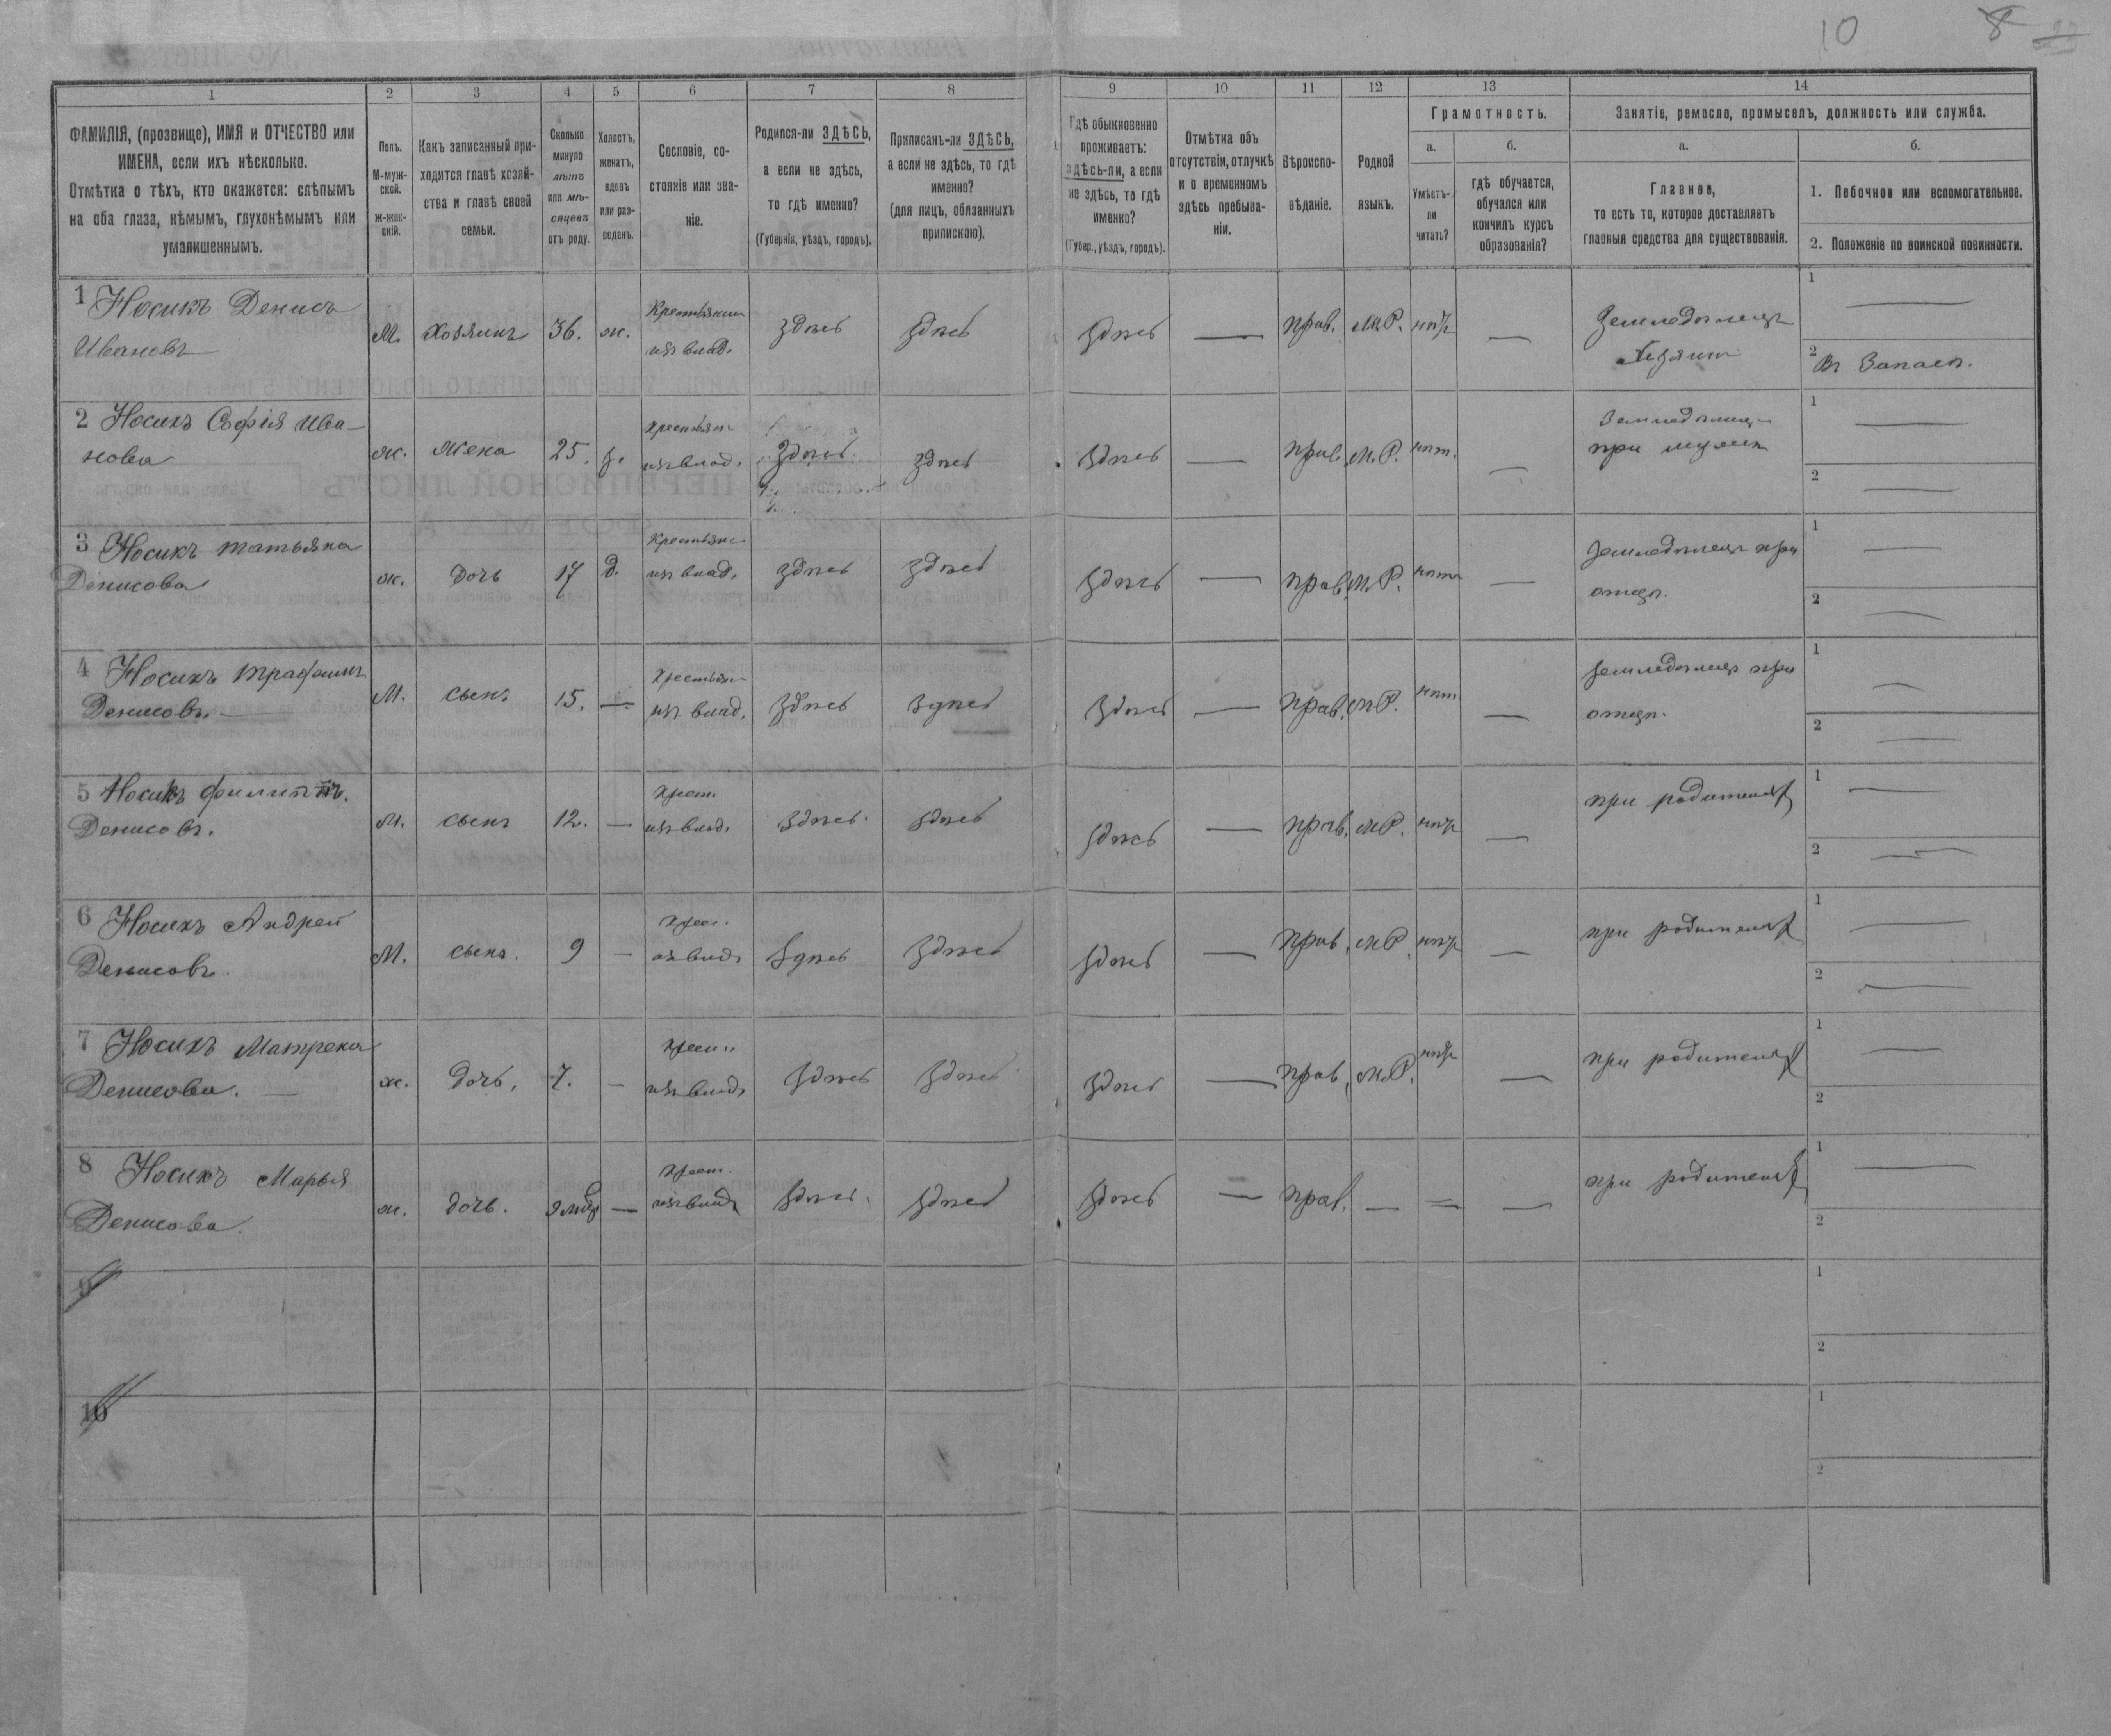 10
8
1
2
3
4
5
6
7
8
9
10
11
12
13
14
ФАМИЛІЯ, (прозвище), ИМЯ и ОТЧЕСТВО или
ИМЕНА, если ихъ нѣсколько.
Отмѣтка о тѣхъ, кто окажется: слѣпымъ
на оба глаза, нѣмымъ, глухонѣмымъ или
умалишеннымъ.
Полъ.
М-муж-
ской.
Ж-жен-
скій.
Какъ записанный при-
ходится главѣ хозяй-
ства и главѣ своей
семьи.
Сколько
минуло
лѣтъ
или мѣ-
сяцевъ
отъ роду.
Холостъ,
женатъ,
вдовъ
или раз-
веденъ.
Сословіе, со-
стояніе или зва-
ніе.
Родился-ли ЗДѢСЬ,
а если не здѣсь,
то гдѣ именно?
(Губернія, уѣздъ, городъ).
Приписанъ-ли ЗДѢСЬ,
а если не здѣсь, то гдѣ
именно?
(для лицъ, обязанныхъ
припискою).
Гдѣ обыкновенно
проживаетъ:
здѣсь-ли, а если
не здѣсь, то гдѣ
именно?
(Губер., уѣздъ, городъ).
Отмѣтка объ
отсутствіи, отлучкѣ
и о временномъ
здѣсь пребыва-
ніи.
Вѣроиспо-
вѣданіе.
Родной
языкъ.
Грамотность.
а.
Умѣетъ-
ли
читать?
б.
гдѣ обучается,
обучался или
кончилъ курсъ
образованія?
Занятіе, ремесло, промыселъ, должность или служба.
а.
Главное,
то есть то, которое доставляетъ
главныя средства для существованія.
б.
1. Побочное или вспомогательное.
2. Положеніе по воинской повинности.
1 Носикъ Денисъ
Ивановъ
М. хозяинъ 36. ж.
Крестьянин
изъ влад.
здѣсь здѣсь здѣсь — прав. М.Р. нѣт —
Земледѣлецъ
Хозяинъ
1 —
2 Въ Запасѣ.
2 Носикъ Софія Ива-
нова
ж. жена 25. з.
крестьян
изъ влад.
здѣсь здѣсь здѣсь — прав. М.Р. нѣт. —
Земледѣлец
при мужѣ
1 —
2 —
3 Носикъ татьяна
Денисова
ж. дочь 17 д.
Крестьян
изъ влад.
здѣсь здѣсь здѣсь — прав. М.Р. нѣт —
земледѣлецъ при
отцѣ.
1 —
2 —
4 Носикъ трафимъ
Денисовъ. —
М. сынъ 15. —
крестьян
изъ влад.
здѣсь здѣсь здѣсь — прав. М.Р. нѣт. —
земледѣлецъ при
отцѣ.
1 —
2 —
5 Носикъ филиппъ.
Денисовъ.
М. сынъ 12. —
крест.
изъ влад.
здѣсь. здѣсь здѣсь — прав. М.Р. нѣт —
при родителях
1 —
2 —
6 Носикъ Андрей
Денисовъ.
М. сынъ. 9 —
крес.
изъ влад
здѣсь здѣсь здѣсь — прав. М.Р. нѣт —
при родителях
1 —
2 —
7 Носикъ Матрена
Денисова. —
ж. дочь. 7. —
крест.
изъ влад
здѣсь здѣсь здѣсь — прав. М.Р. нѣт —
при родителях
1 —
2
8 Носикъ Марья
Денисова.
ж. дочь. 9 мѣс —
крест.
изъ влад
здѣсь. здѣсь здѣсь — прав. — — —
при родителях
1 —
2
9
1
2
10
1
2